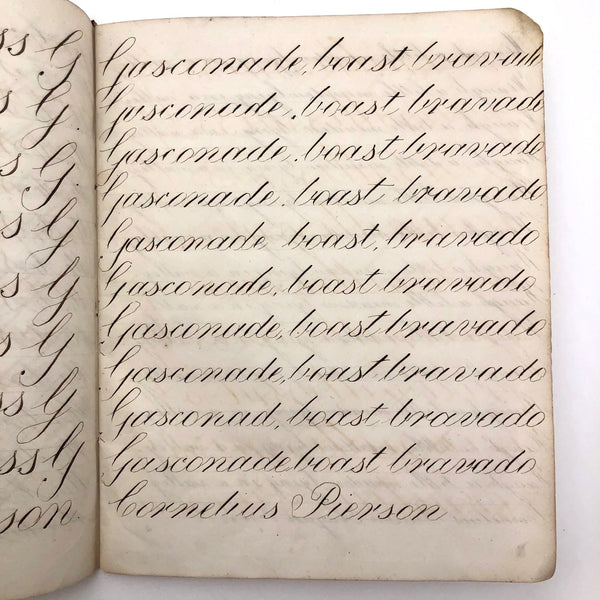 ss G Gasconade, boast bravado
s G. Gasconade, boast bravado
s G. Gasconade. boast bravado
s G. Gasconade. boast bravado
s G Gasconade boast, bravado
s G Gasconade, boast bravado
s G Gasconude, boast bravado
s G Gasconade, boast bravado
ss G Gasconad, boast bravado
ss G Gasconade boast bravado
son. Cornelius Pierson